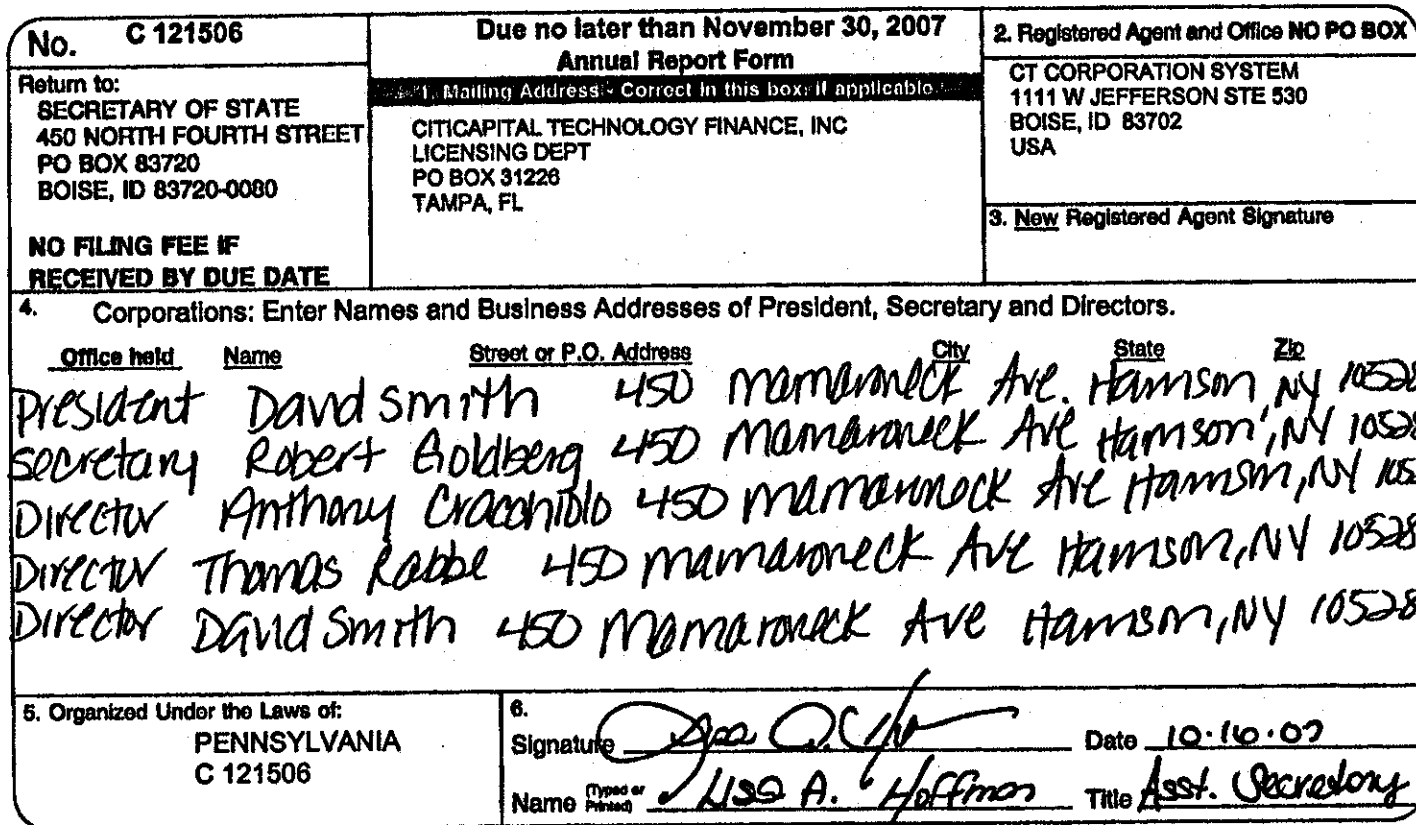 No. C 121506
Return to:
SECRETARY OF STATE
450 NORTH FOURTH STREET
PO BOX 83720
BOISE, ID 83720-0080
NO FILING FEE IF
RECEIVED BY DUE DATE
Due no later than November 30, 2007
Annual Report Form
1. Mailing Address - Correct in this box, if applicable
CITICAPITAL TECHNOLOGY FINANCE, INC
LICENSING DEPT
PO BOX 31226
TAMPA, FL
2. Registered Agent and Office NO PO BOX
CT CORPORATION SYSTEM
1111 W JEFFERSON STE 530
BOISE, ID 83702
USA
3. New Registered Agent Signature
4. Corporations: Enter Names and Business Addresses of President, Secretary and Directors.
Office held Name Street or P.O. Address City State Zip
President David Smith 450 Mamaroneck Ave. Harrison, NY 10528
Secretary Robert Goldberg 450 Mamaroneck Ave Harrison, NY 10528
Director Anthony Cracchiolo 450 Mamaroneck Ave Harrison, NY 105
Director Thomas Rabbe 450 Mamaroneck Ave Harrison, NY 10528
Director David Smith 450 Mamaroneck Ave Harrison, NY 10528
5. Organized Under the Laws of:
PENNSYLVANIA
C 121506
6.
Signature Date 10.16.07
Name (Typed or Printed) Lisa A. Hoffman Title Asst. Secretary